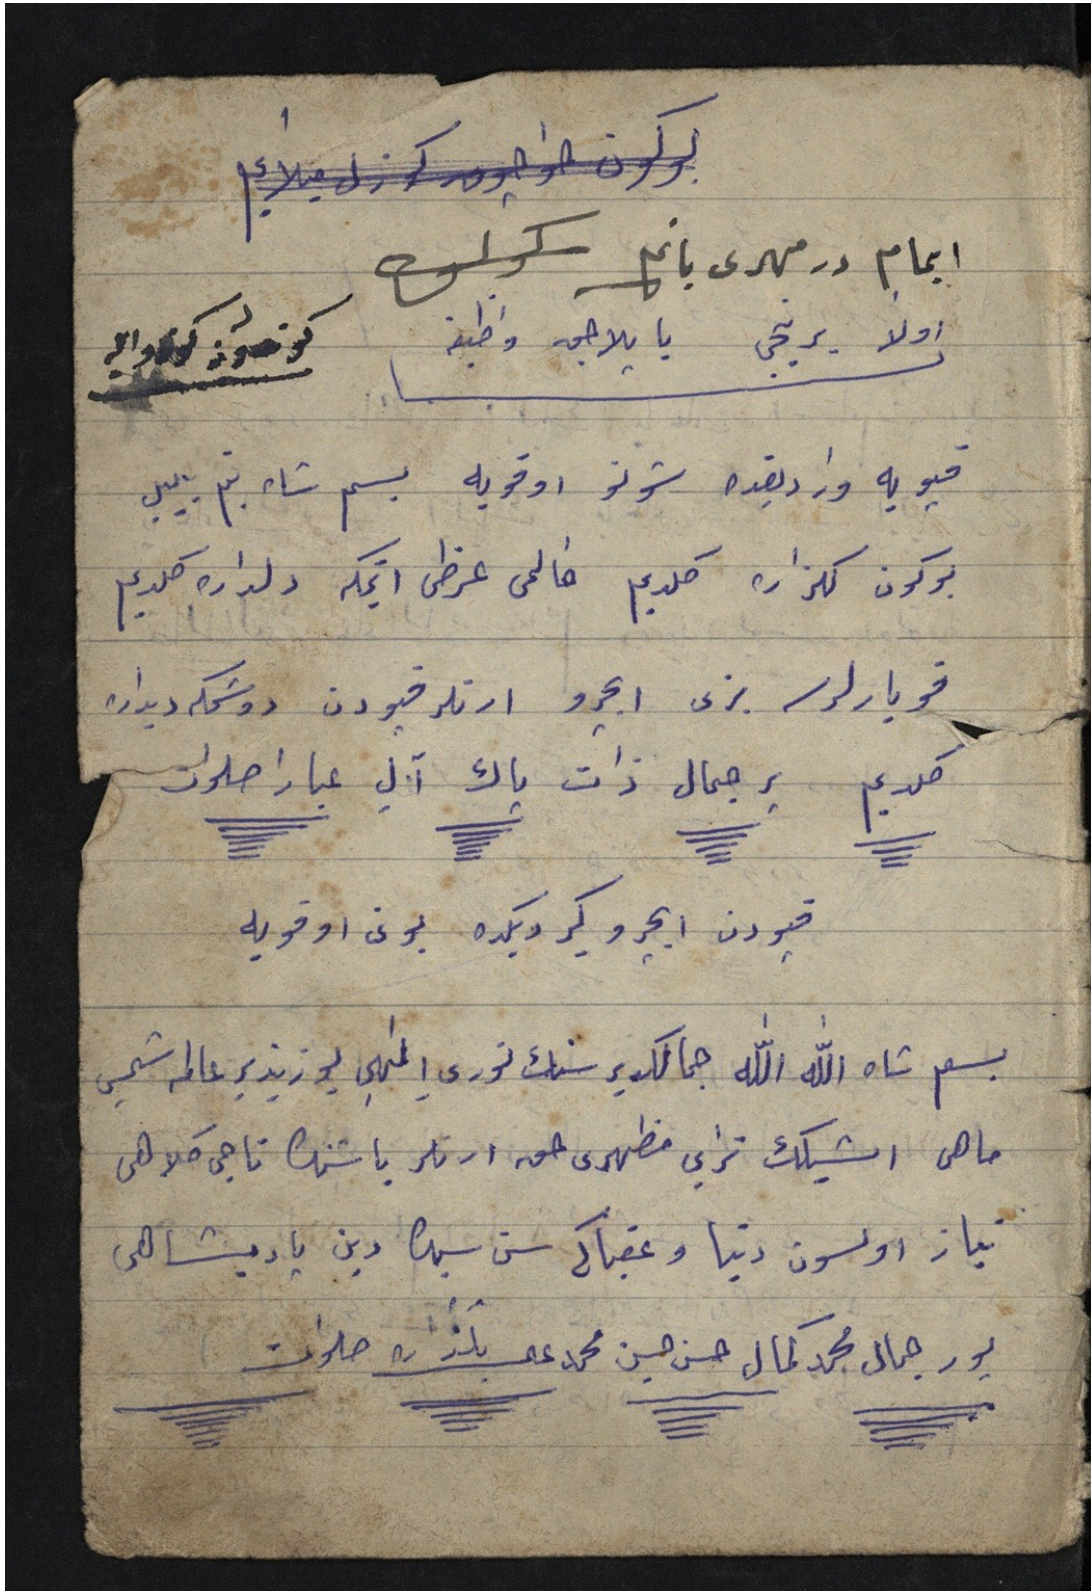 بوكون
ايمام در مهرى يانم
اولا برنجى ياپلاجق وظيفه
قپويه وارديقده شونو اوقويه بسم شاه
بوكون كلزاره كلديم حالمى عرظى اتمكه دلداره كلديم
قويارلرسه بزى ايچرو ارنلر قپودن دوشمكه ديداره
كلديم بر جمال ذات پاك آل عبارا صلوات
قپودن ايچرو كيرديكده بونى اوقويه
بسم شاه اللّٰه اللّٰه جمالكدير سنك نورى الهى يوزيندير عالمه شمسى
ماهى اشيكك ترابى مظهرى حق ارنلر باشنه تاجى كلاهى
نياز اولسون دنيا و عقباكى سن سيه دين پاديشاهى
بور جمال محمد كمال حسن حسين محمد على صلوات